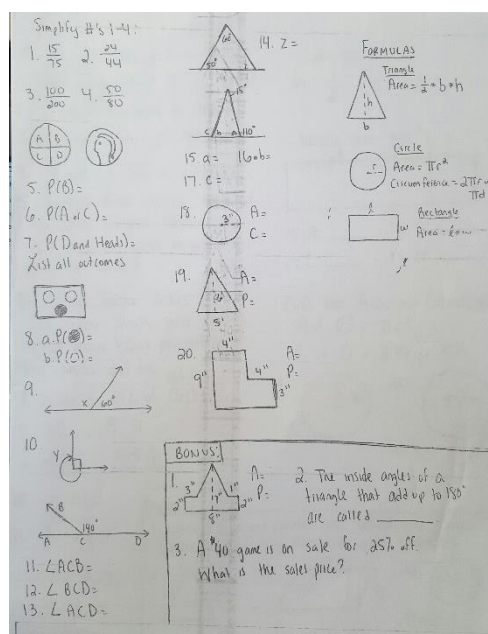 Simplify #'s 1-4:
1. 15/75 2. 24/44
3. 100/200 4. 50/80
A B
C D
5. P(B)=
6. P(A or C)=
7. P(D and Heads)=
List all outcomes
8. a. P( )=
b. P( )=
9.
X 60°
10.
Y
B
140°
A C D
11. ∠ACB=
12. ∠BCD=
13. ∠ACD=
60°
50°
14. Z=
15°
c b a 110°
15. a= 16. b=
17. c=
18.
3"
A=
C=
19.
A=
P=
5'
20.
4"
9"
4"
3"
A=
P=
FORMULAS
Triangle
Area = 1/2 * b * h
h
b
Circle
r
Area = πr²
Circumference = 2πr or
πd
Rectangle
l
w
Area = l * w
BONUS:
1.
3" 1"
2" 2"
8"
A=
P=
2. The inside angles of a
triangle that add up to 180°
are called
3. A $40 game is on sale for 25% off.
What is the sales price?